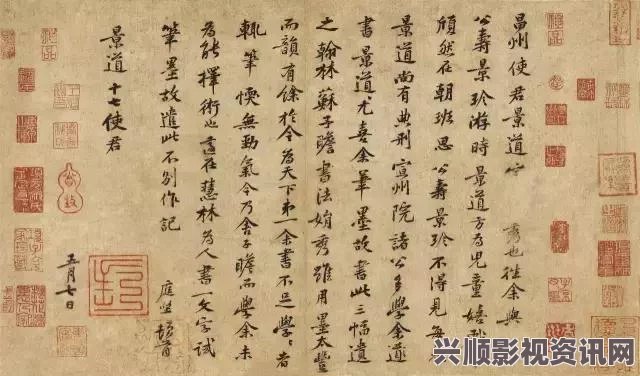 昌州使君景道宗秀也往余與
公壽景珍游時景道方為兒童嬉戲今
頎然在朝班思公壽景珍不得見每見
景道尚有典刑宣州院諸公多學余
書景道尤喜余筆墨故書此三幅遺
之翰林蘇子瞻書法娟秀雖用墨太豐
而韻有餘於今為天下第一余書不足學學者
輒筆愞無勁氣今乃舍子瞻而學余未
為能擇術也適在慧林為人書一文字試
筆墨故遣此不別作記 庭堅頓首
景道十七使君
五月七日
兴顺影视资讯网